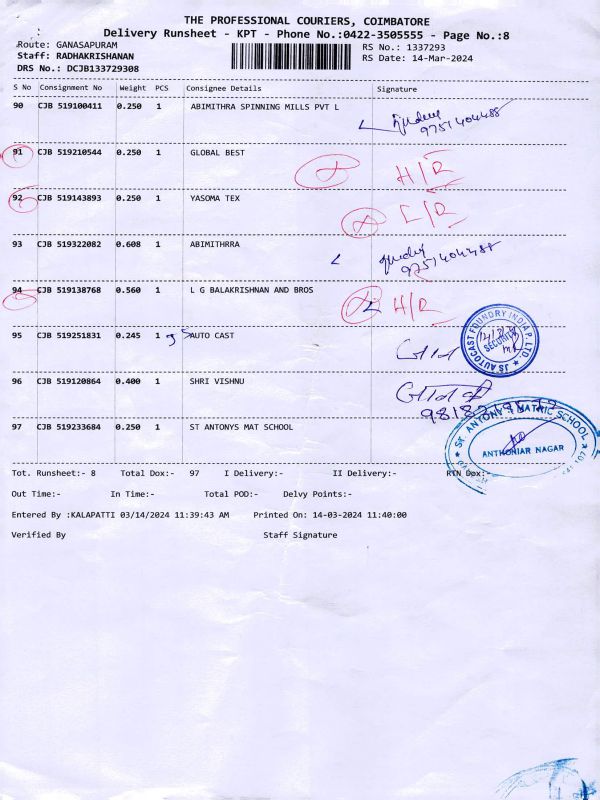 THE PROFESSIONAL COURIERS, COIMBATORE
Delivery Runsheet - KPT - Phone No.:0422-3505555 - Page No.:8
Route: GANASAPURAM RS No.: 1337293
Staff: RADHAKRISHANAN RS Date: 14-Mar-2024
DRS No.: DCJB133729308
S No Consignment No Weight PCS Consignee Details Signature
90 CJB 519100411 0.250 1 ABIMITHRA SPINNING MILLS PVT L
9751404488
91 CJB 519210544 0.250 1 GLOBAL BEST H/R
92 CJB 519143893 0.250 1 YASOMA TEX
93 CJB 519322082 0.608 1 ABIMITHRRA
9751404488
94 CJB 519138768 0.560 1 L G BALAKRISHNAN AND BROS H/R
95 CJB 519251831 0.245 1 JS AUTO CAST
JS AUTOCAST FOUNDRY INDIA P. LTD.
SECURITY
96 CJB 519120864 0.400 1 SHRI VISHNU
97 CJB 519233684 0.250 1 ST ANTONYS MAT SCHOOL
ST. ANTONY'S MATRIC SCHOOL
ANTHONIAR NAGAR
Tot. Runsheet:- 8 Total Dox:- 97 I Delivery:- II Delivery:- RTN Dox:-
Out Time:- In Time:- Total POD:- Delvy Points:-
Entered By :KALAPATTI 03/14/2024 11:39:43 AM Printed On: 14-03-2024 11:40:00
Verified By Staff Signature